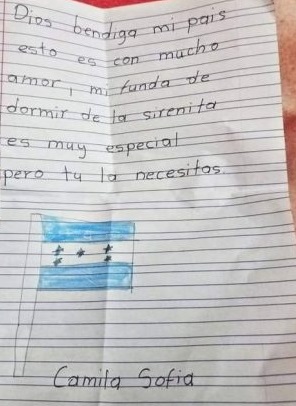 Dios bendiga mi pais
esto es con mucho
amor, mi funda de
dormir de la sirenita
es muy especial
pero tu la necesitas.
Camila Sofia